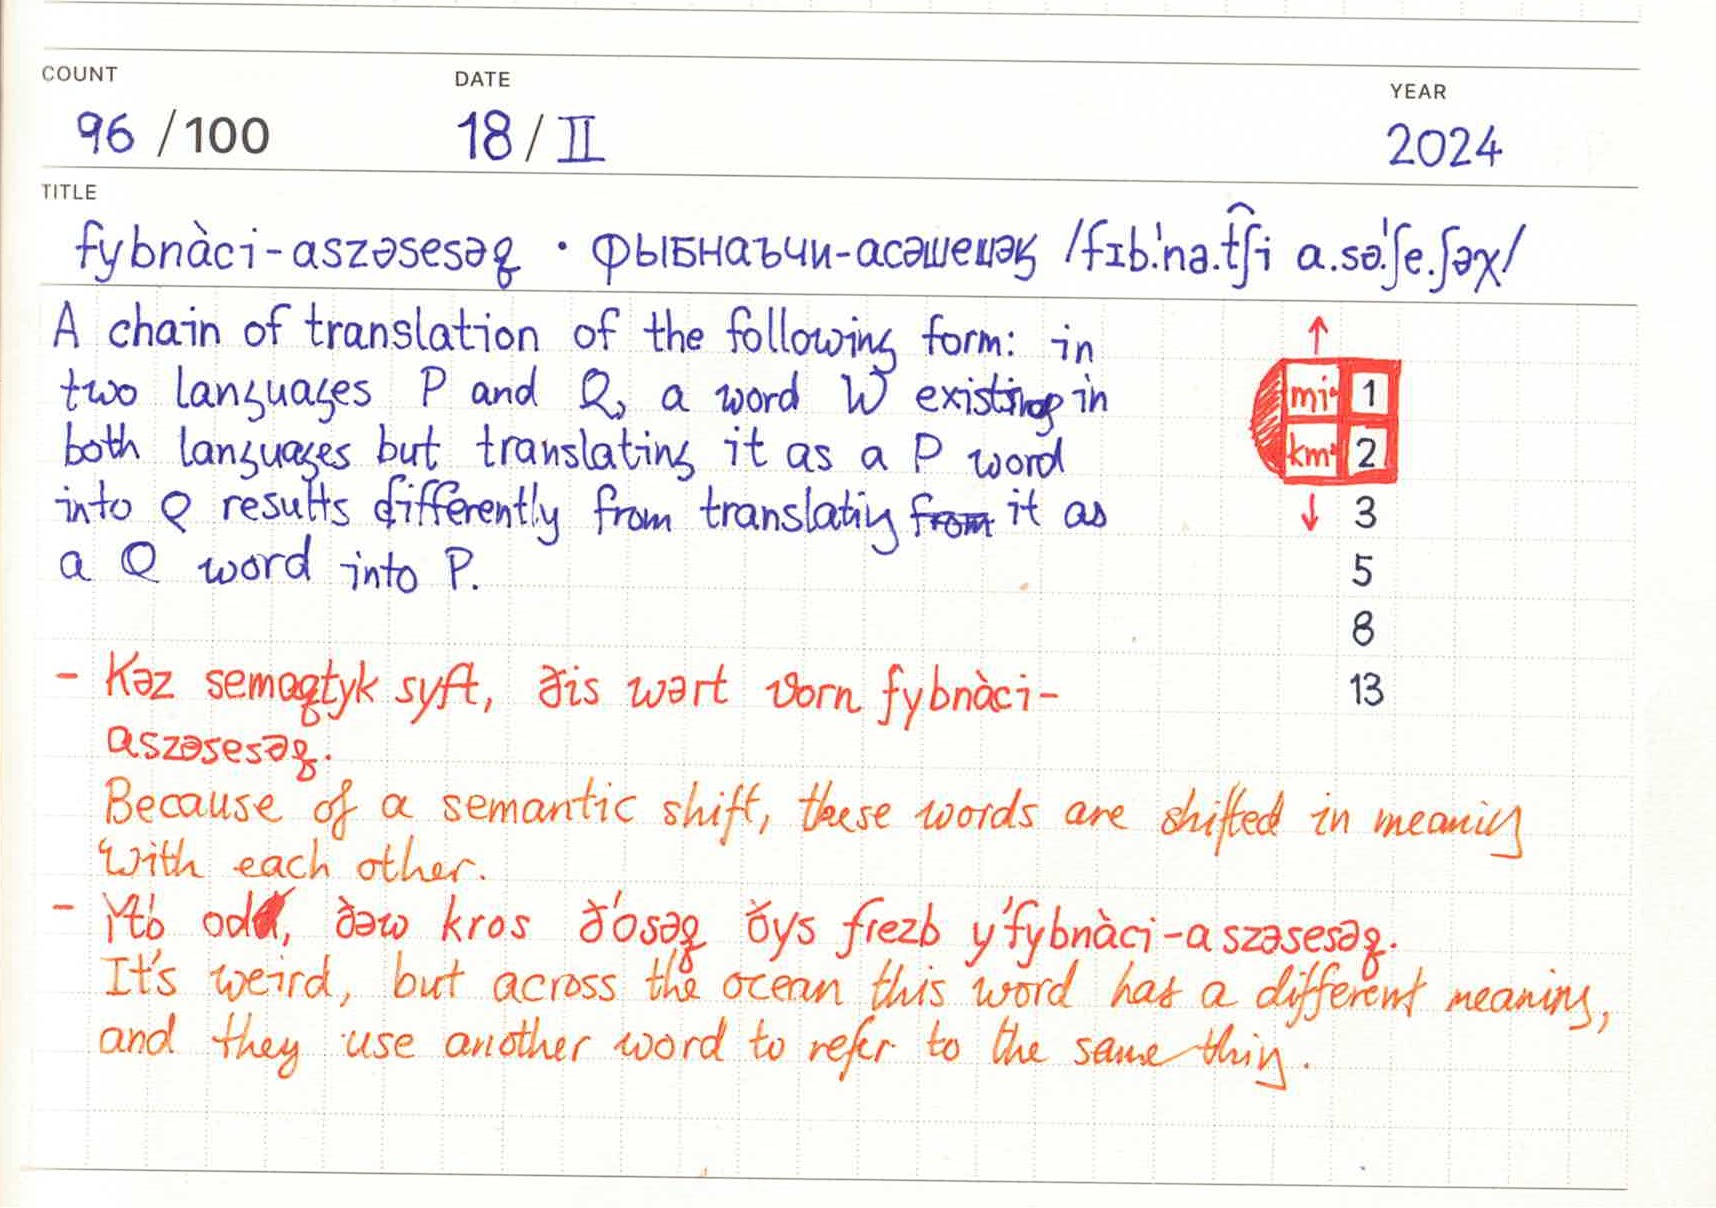 COUNT DATE YEAR
96 /100 18/II 2024
TITLE
fybnàci-aszəsesəꝗ · фыбнаъчи-асəшешəҕ /fɪb.ˈnə.t͡ʃi a.sə.ˈʃe.ʃəχ/
A chain of translation of the following form: in
two languages P and Q, a word W existing in
both languages but translating it as a P word
into Q results differently from translating from it as
a Q word into P.
↑
mi 1
km 2
↓ 3
5
8
13
- Kəz semaꝗtyk syft, ðis wərt vorn fybnàci-
aszəsesəꝗ.
Because of a semantic shift, these words are shifted in meaning
with each other.
- kros ð'osəꝗ ðys frezb y'fybnàci-aszəsesəꝗ.
It's weird, but across the ocean this word has a different meaning,
and they use another word to refer to the same thing.